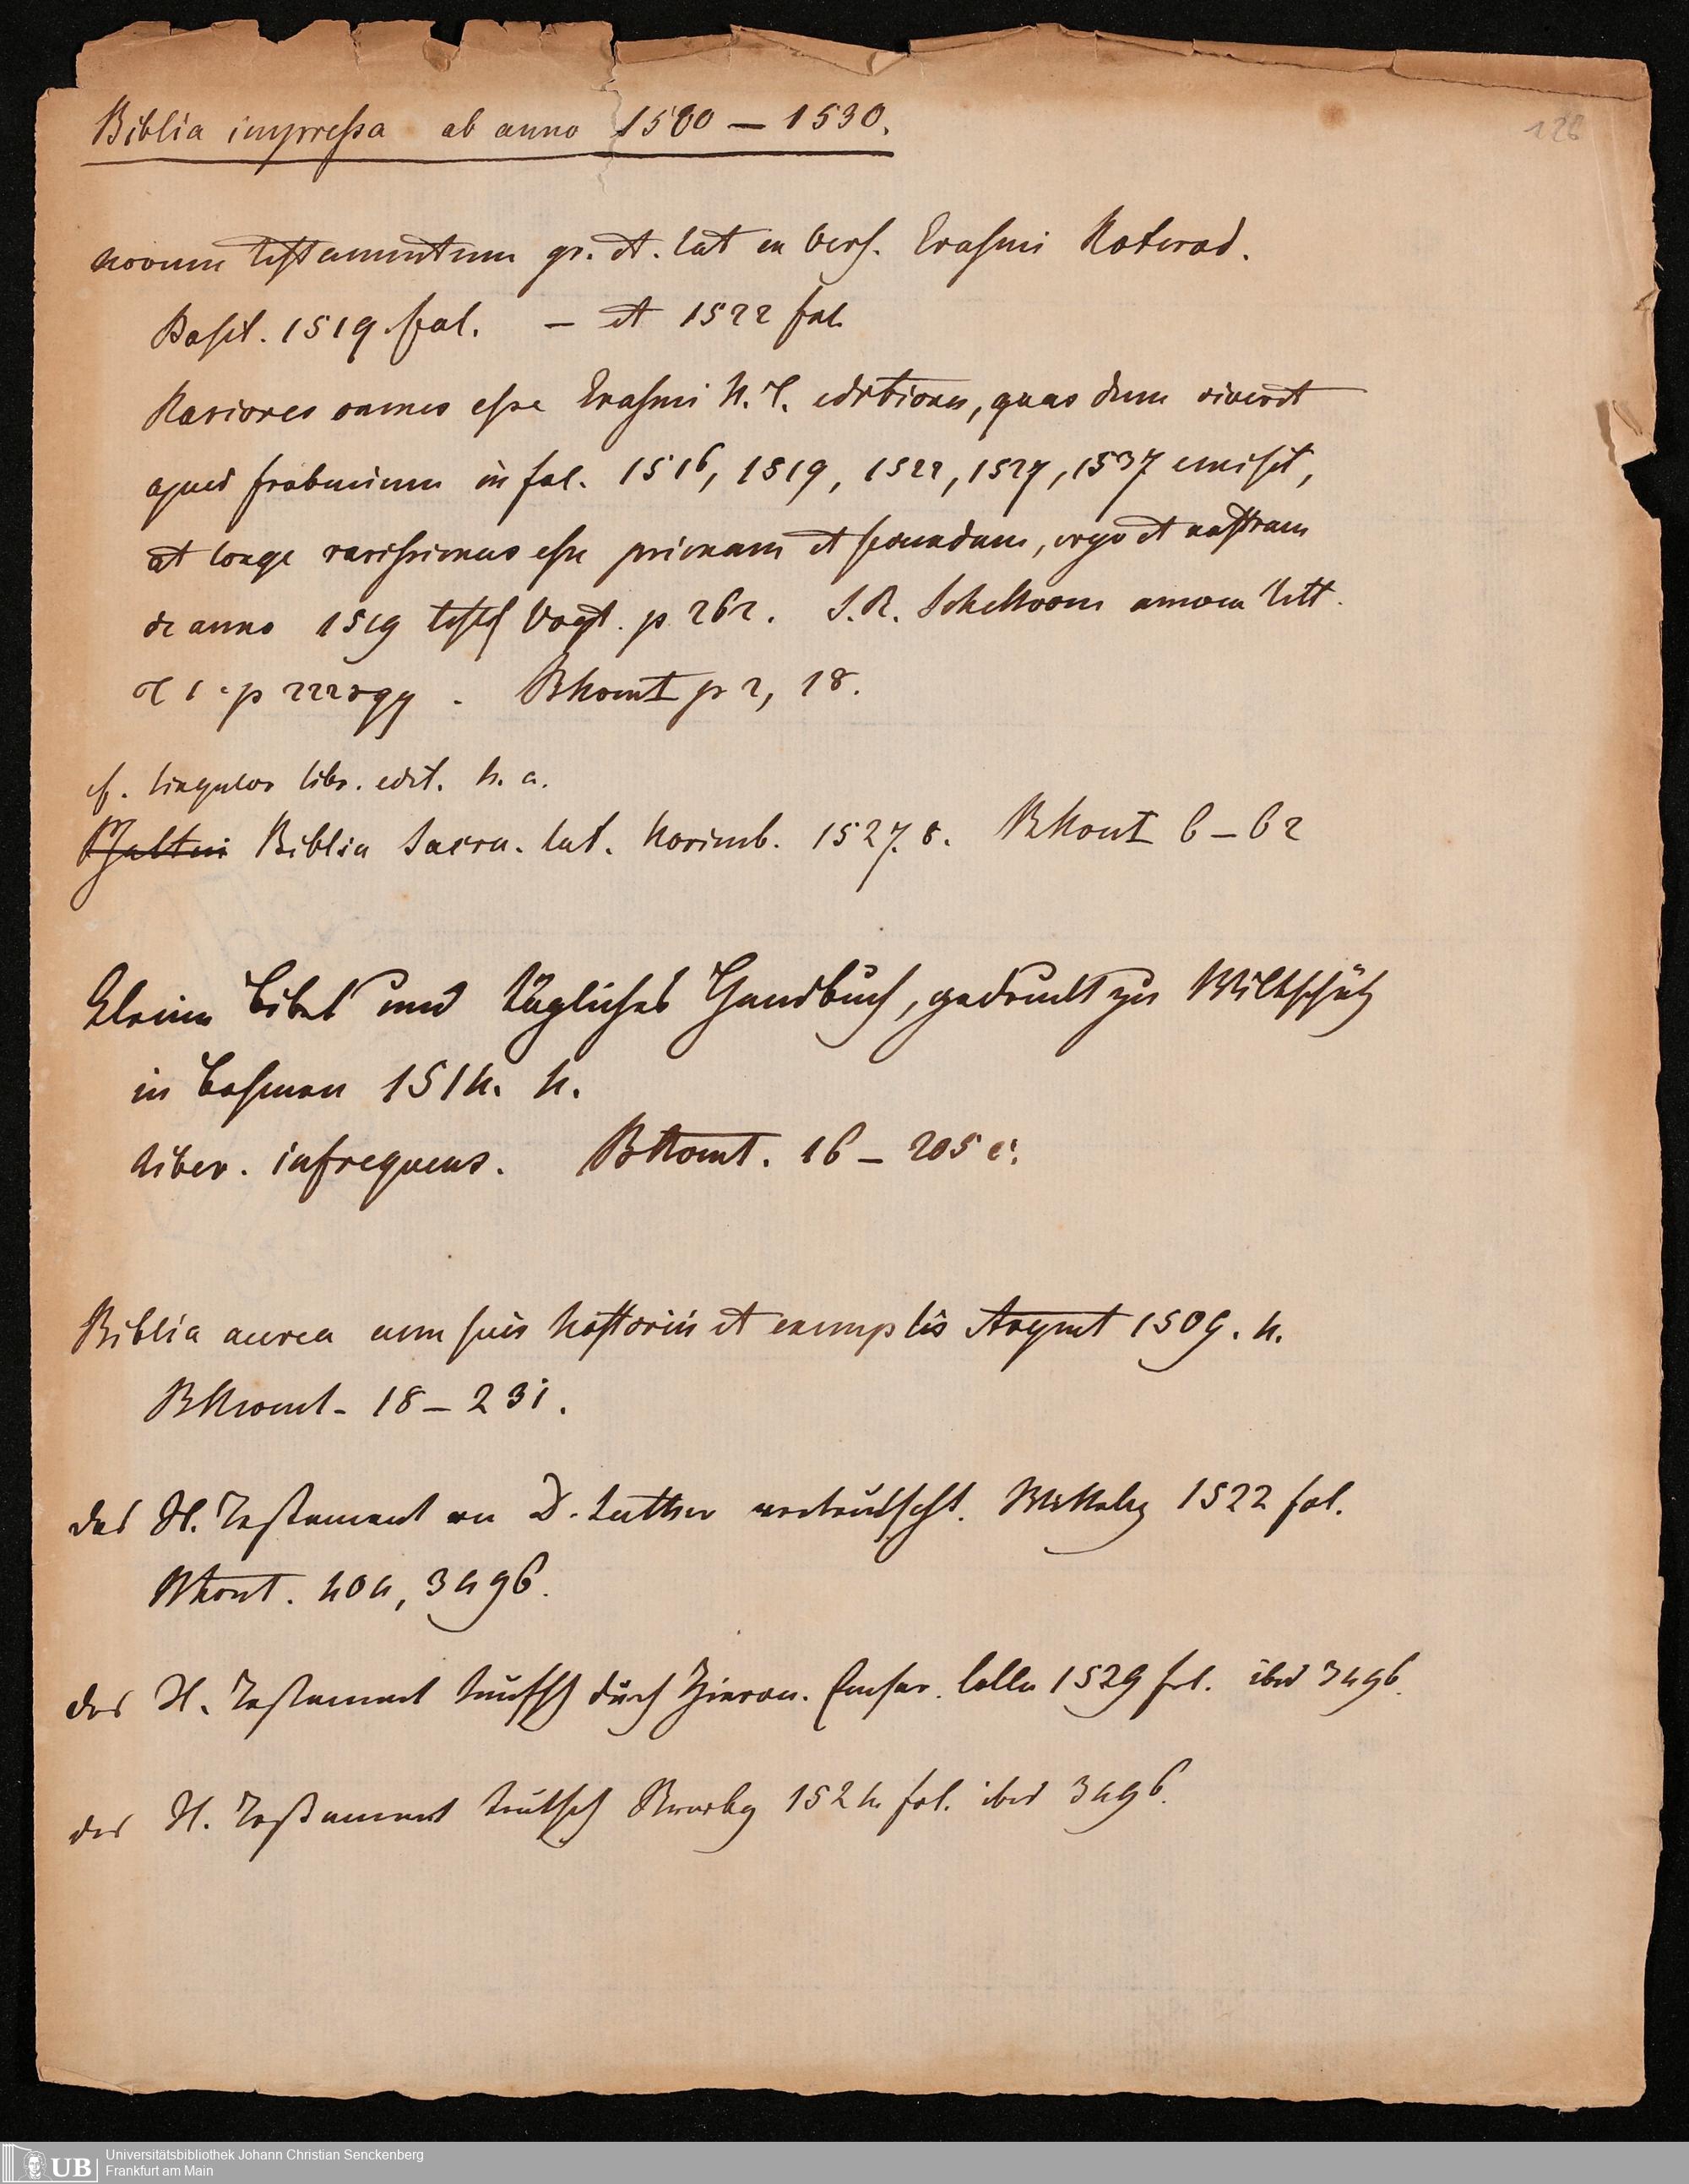 Biblia impressa ab anno 1500 — 1530.
128
novum testamentum gr. et. lat ex vers. Erasmi Roterod.
Basil. 1519. fol. — et 1522 fol.
Rariores omnes esse Erasmi N. T. editiones, quas dum vixerit
apud frobenium in fol. 1516, 1519, 1522, 1527, 1537 emisit,
at longe rarissimas esse primam et secundam, ergo et nostram
de anno 1519 Vogt. p 262. Schelhorn amoen litt.
p 222 . p 2, 18.
cf. singulos libr. edit. h. a.
Biblia Sacra. lat. Norimb. 1527. 8. 6 — 62
Kleine Bibel und tägliches Handbuch, gedruckt zu
in Böhmen 1514. 4.
Liber. infrequens. 16 — 205
Biblia aurea cum suis historiis et exemplis Argent 1509. 4.
18 — 231.
das N. Testament von D. Luther verteutscht. Wittenbg 1522 fol.
404, 3496.
das N. Testament teutsch durch Hieron. Emser. Cölln 1529 fol. ibid 3496.
das N. Testament teutsch Nürnbg 1524 fol. ibid 3496.
UB
Universitätsbibliothek Johann Christian Senckenberg
Frankfurt am Main